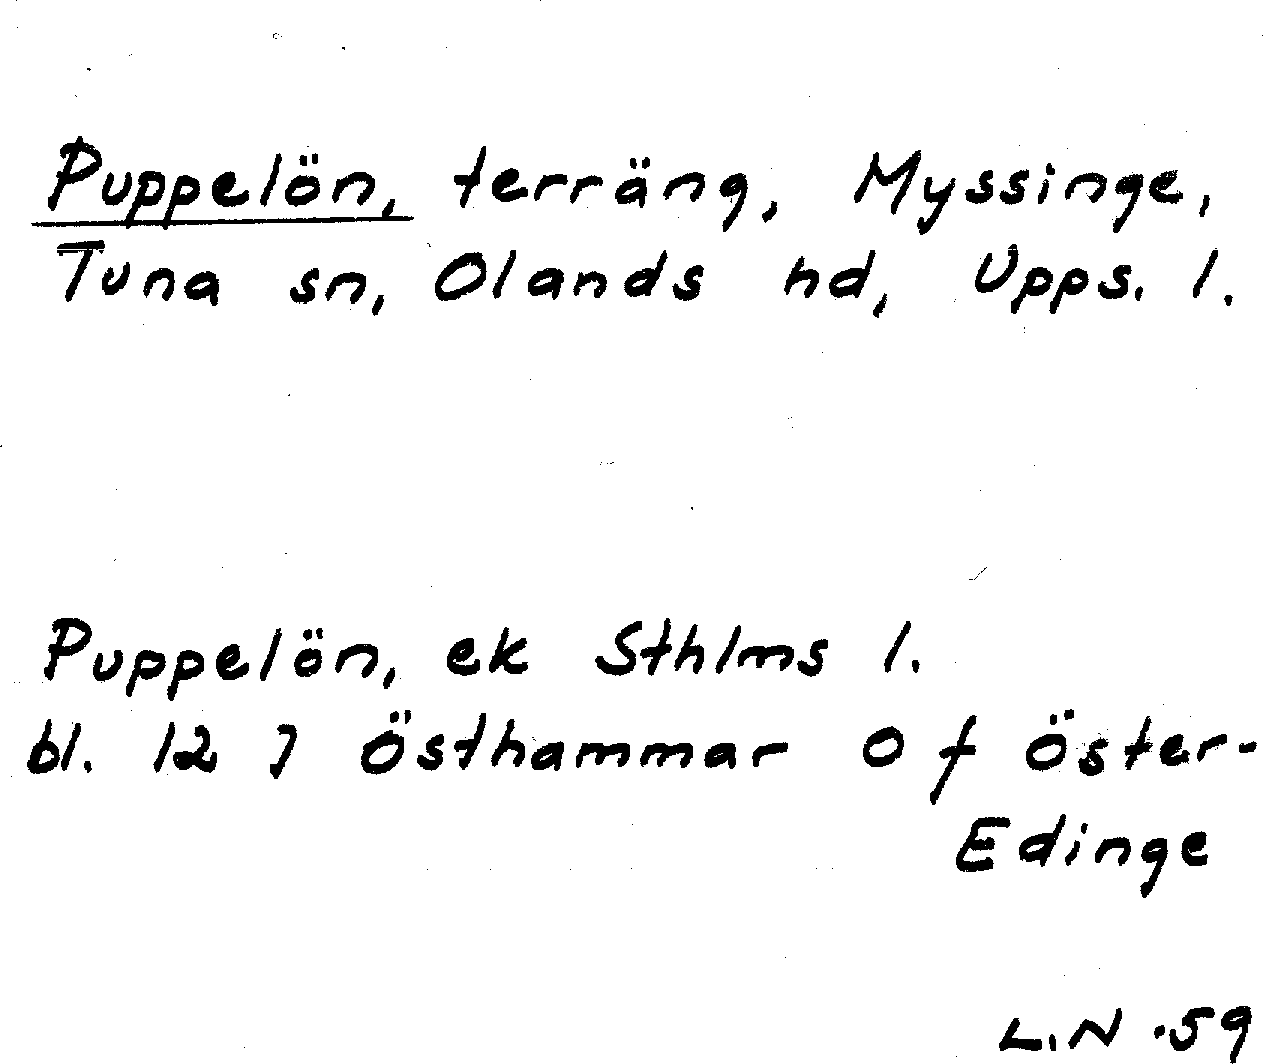 Puppelön, terräng, Myssinge,
Tuna sn, Olands hd, Upps. l.
Puppelön, ek Sthlms l.
bl. 12 I Östhammar O f Öster-
Edinge
L.N .59